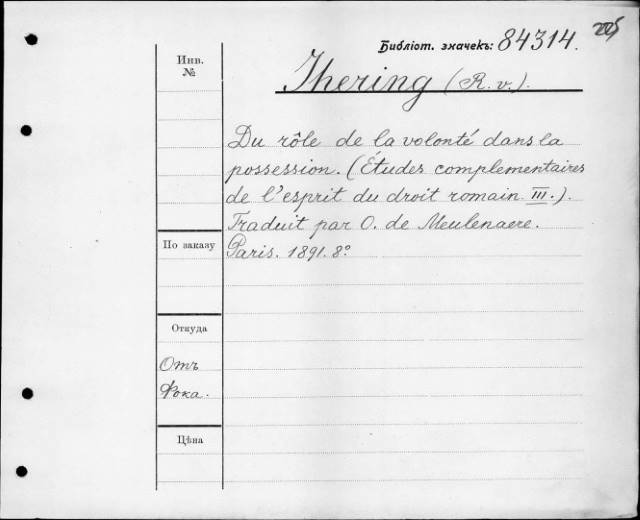 Библіот. значекъ: 84314.
225
Инв.
№
Jhering (R. v.).
Du rôle de la volonté dans la
possession. (Études complementaires
de l'esprit du droit romain III.).
Traduit par O. de Meulenaere.
По заказу
Paris. 1891. 8º
Откуда
Отъ
Фока.
Цѣна